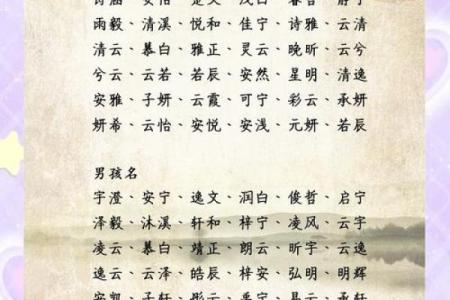 雨毅、清溪、悦和、佳宁、诗雅、云清
清云、慕白、雅正、灵云、晚昕、云兮
兮云、云若、若辰、安然、星明、清逸
安雅、子妍、云霞、可宁、彩云、承妍
妍希、云怡、安悦、安浅、元妍、若辰
男孩名
宇澄、安宁、逸文、润白、俊哲、启宁
泽毅、沐溪、轩和、梓宁、凌风、云宇
凌云、慕白、靖正、朗云、昕宇、云逸
逸云、云泽、皓辰、梓安、弘明、明辉